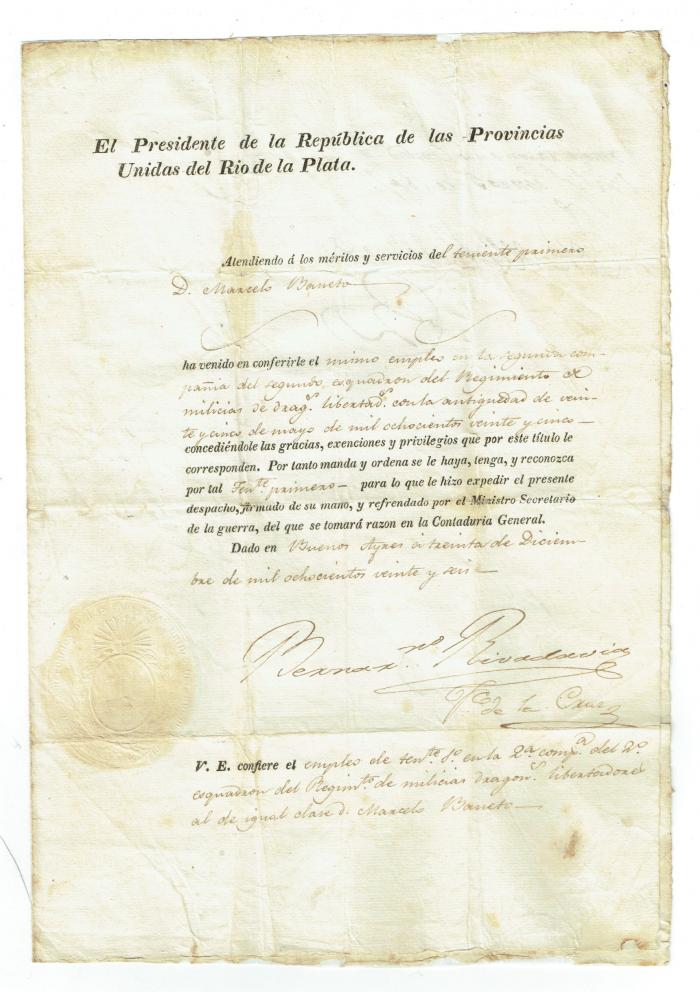 El Presidente de la República de las Provincias
Unidas del Rio de la Plata.
Atendiendo á los méritos y servicios del teniente primero
D. Marcelo
ha venido en conferirle el mismo empleo en la segunda com-
pañia del segundo esquadron del Regimiento de
milicias de drags. libertads. con la antiguedad de vein-
te y cinco de mayo de mil ochocientos veinte y cinco—
concediéndole las gracias, exenciones y privilegios que por este título le
corresponden. Por tanto manda y ordena se le haya, tenga, y reconozca
por tal Tente. primero— para lo que le hizo expedir el presente
despacho, firmado de su mano, y refrendado por el Ministro Secretario
de la guerra, del que se tomará razon en la Contaduria General.
Dado en Buenos Ayres á treinta de Diciem-
bre de mil ochocientos veinte y seis—
Bernarno. Rivadavia
de la Cruz
V. E. confiere el empleo de tente. 1o. en la 2a. compa. del 2o.
esquadron del Regimto. de milicias dragons. libertadores
al de igual clase d. Marcelo